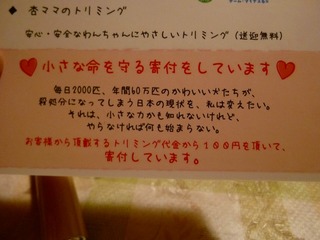 ◆ 杏ママのトリミング
安心・安全なわんちゃんにやさしいトリミング（送迎無料）
♥小さな命を守る寄付をしています♥
毎日2000匹、年間60万匹のかわいい犬たちが、
殺処分になってしまう日本の現状を、私は変えたい。
それは、小さな力かも知れないけれど、
やらなければ何も始まらない。
お客様から頂戴するトリミング代金から１００円を頂いて、
寄付しています。